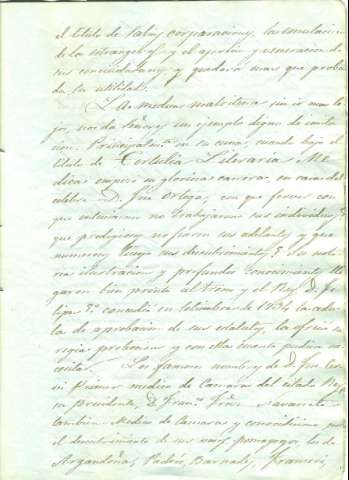 el titulo de sabia corporacion, la emulacion
de la estrangera, y el aprecio y veneracion de
sus conciudadanos y quedará mas que proba
da la utilidad.
La medica matritense sin ir mas le
jos, nos da Señores un ejemplo digno de imita
cion. Principalmente en su cuna, cuando bajo el
titulo de Tertulia Literaria Me
dica empezó su gloriosa carrera, en casa del
celebre D. José Ortega, con que fervor con
que entusiasmo no trabajaron sus individuos?
que prodigiosos no fueron sus adelantos, y que
numerosos luego sus descubrimientos? Su noto
ria ilustracion y profundos conocimientos lle
garon bien pronto al trono y el Rey D. Fe
lipe 5º concedió en setiembre de 1734 la cedu
la de aprobacion de sus estatutos, la ofreció su
regia proteccion y con ella cuanto pudiera ne
cesitar.
Los famosos nombres de D. José Cer
vi Primer medico de Camara del citado Rey
su Presidente, D. Franco
tambien Medico de Camara y conocidisimo por
el descubrimiento de sus
Argandoña, Padrós, Barnades, Franseri,